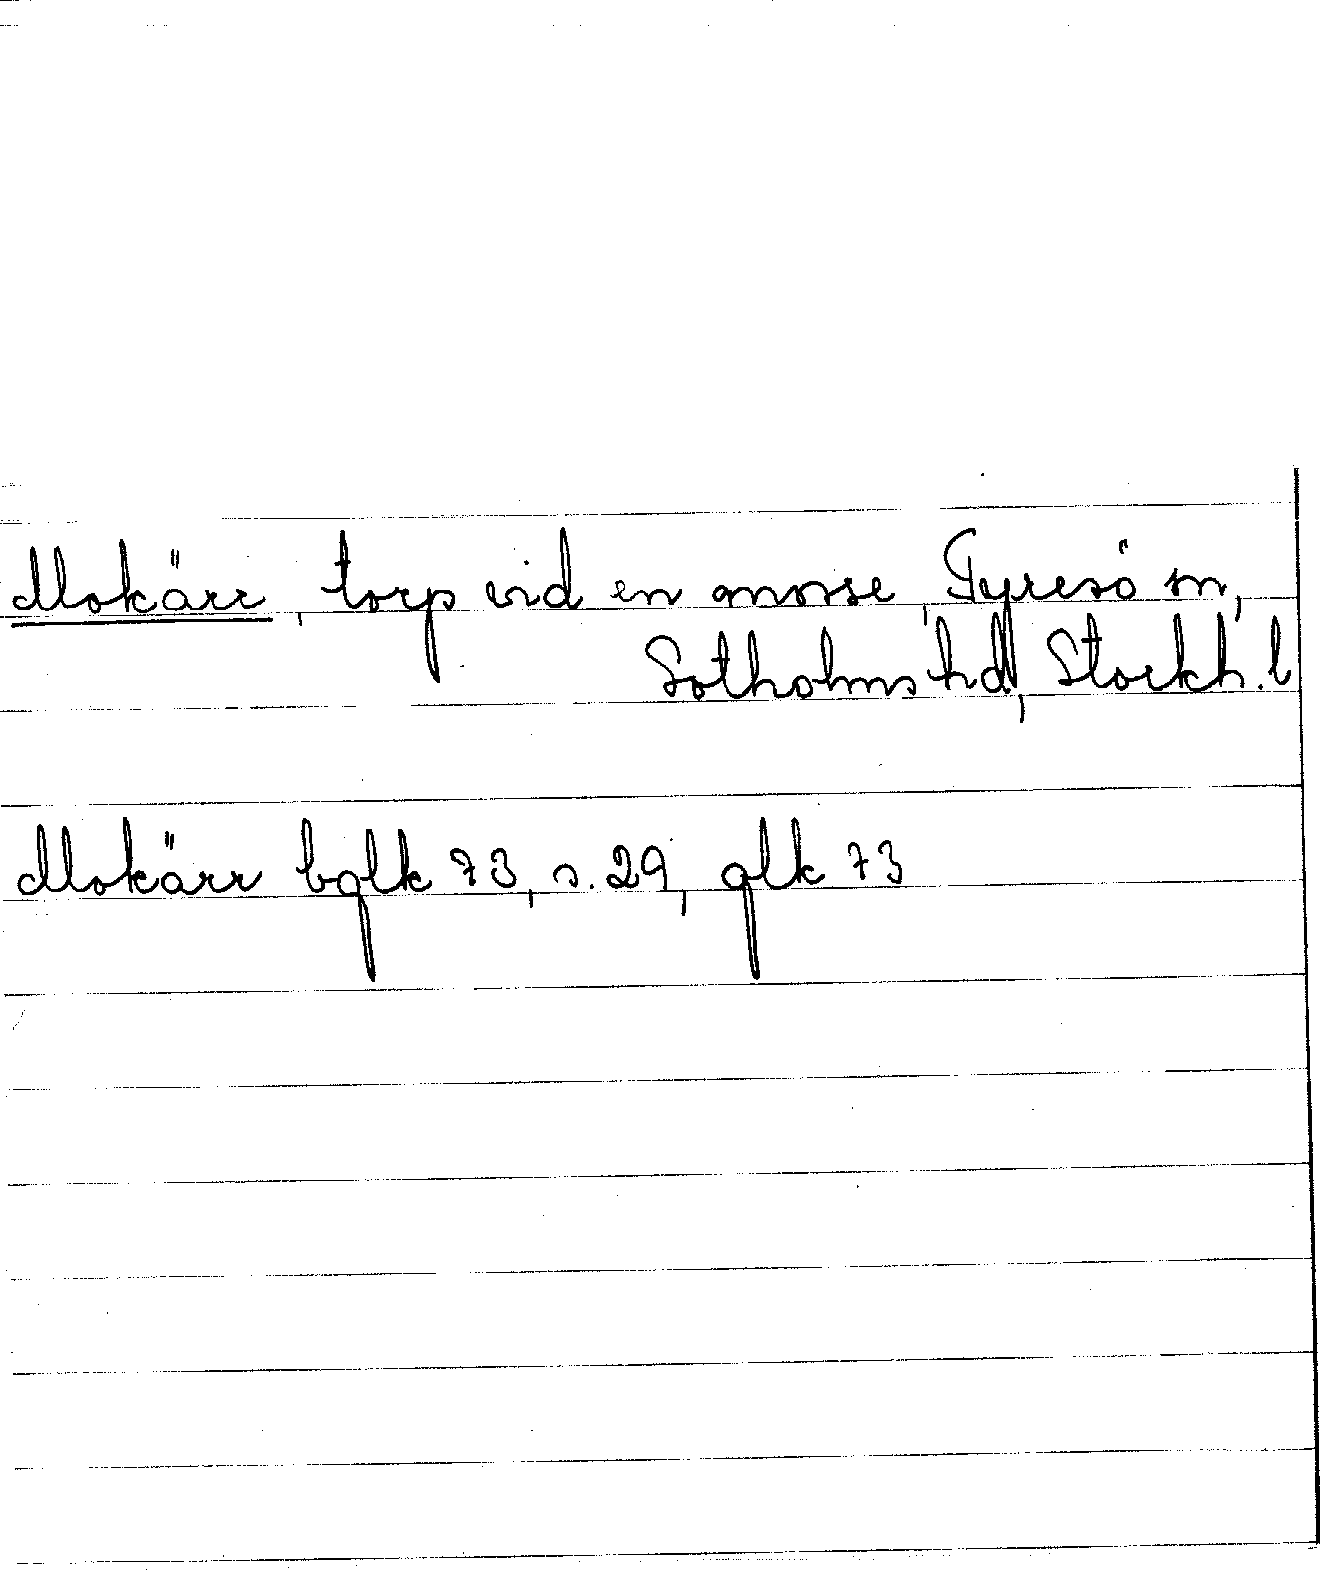 Mokärr, torp vid en mosse, Tyresö sn,
Sotholms hd, Stockh. l
Mokärr bglk 73, s. 29, glk 73